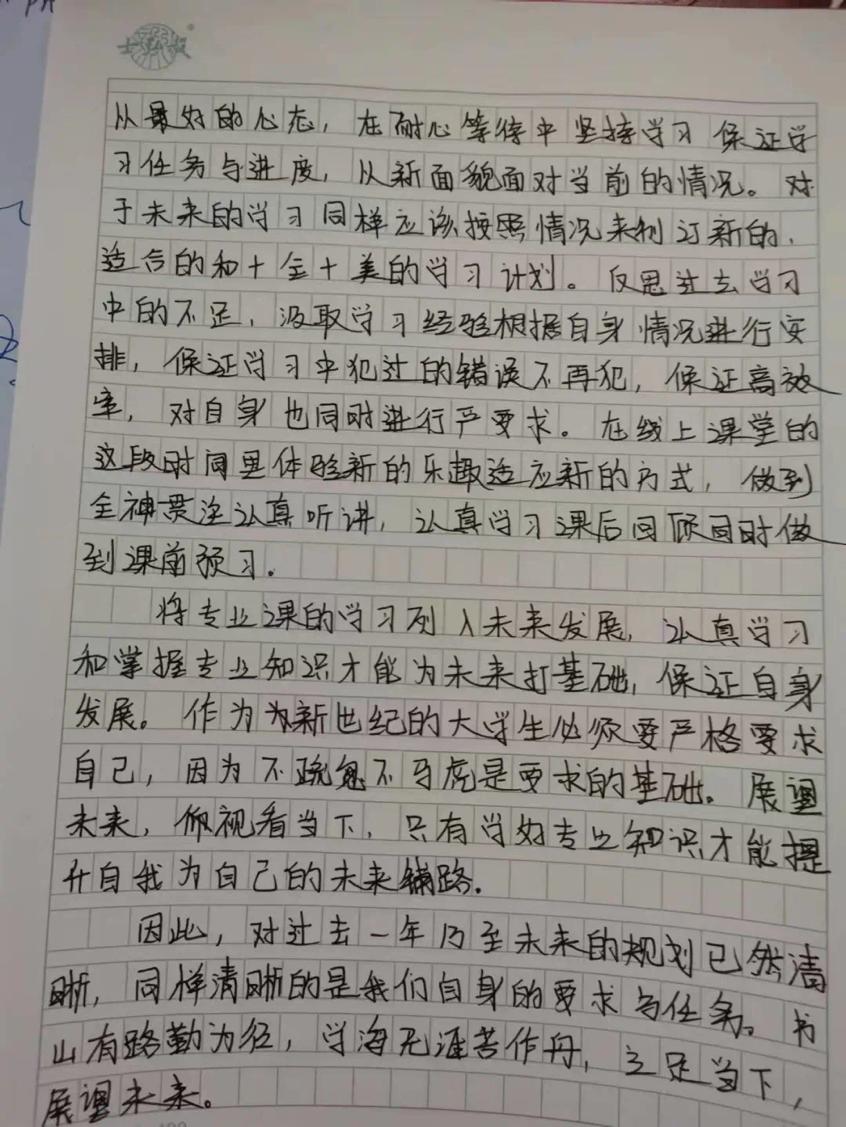 从最好的心态，在耐心等待中坚持学习保证学
习任务与进度，从新面貌面对当前的情况。对
于未来的学习同样应该按照情况来制订新的、
适合的和十全十美的学习计划。反思过去学习
中的不足，汲取学习经验根据自身情况进行安
排，保证学习中犯过的错误不再犯，保证高效
率，对自身也同时进行严要求。在线上课堂的
这段时间里体验新的乐趣适应新的方式，做到
全神贯注认真听讲，认真学习课后回顾同时做
到课前预习.
将专业课的学习列入未来发展，认真学习
和掌握专业知识才能为未来打基础，保证自身
发展。作为为新世纪的大学生必须要严格要求
自己，因为不疏忽不马虎是要求的基础。展望
未来，俯视看当下，只有学好专业知识才能提
升自我为自己的未来铺路.
因此，对过去一年乃至未来的规划已然清
晰，同样清晰的是我们自身的要求与任务。书
山有路勤为径，学海无涯苦作舟，立足当下，
展望未来。